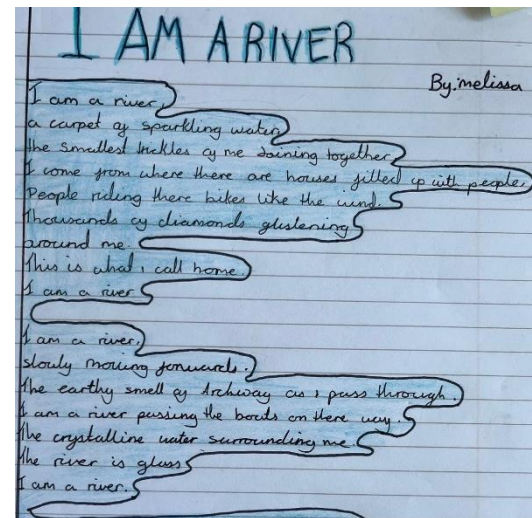 I AM A RIVER
By: melissa
I am a river,
a carpet of sparkling water,
the smallest trickles of me Joining together,
I come from where there are houses filled up with people,
People riding there bikes like the wind.
Thousands of diamonds glistening
around me.
This is what i call home.
I am a river
I am a river,
slowly moving forwards.
The earthy smell of Archway as i pass through.
I am a river pusiing the boats on there way.
The crystalline water surrounding me.
The river is glass
I am a river.